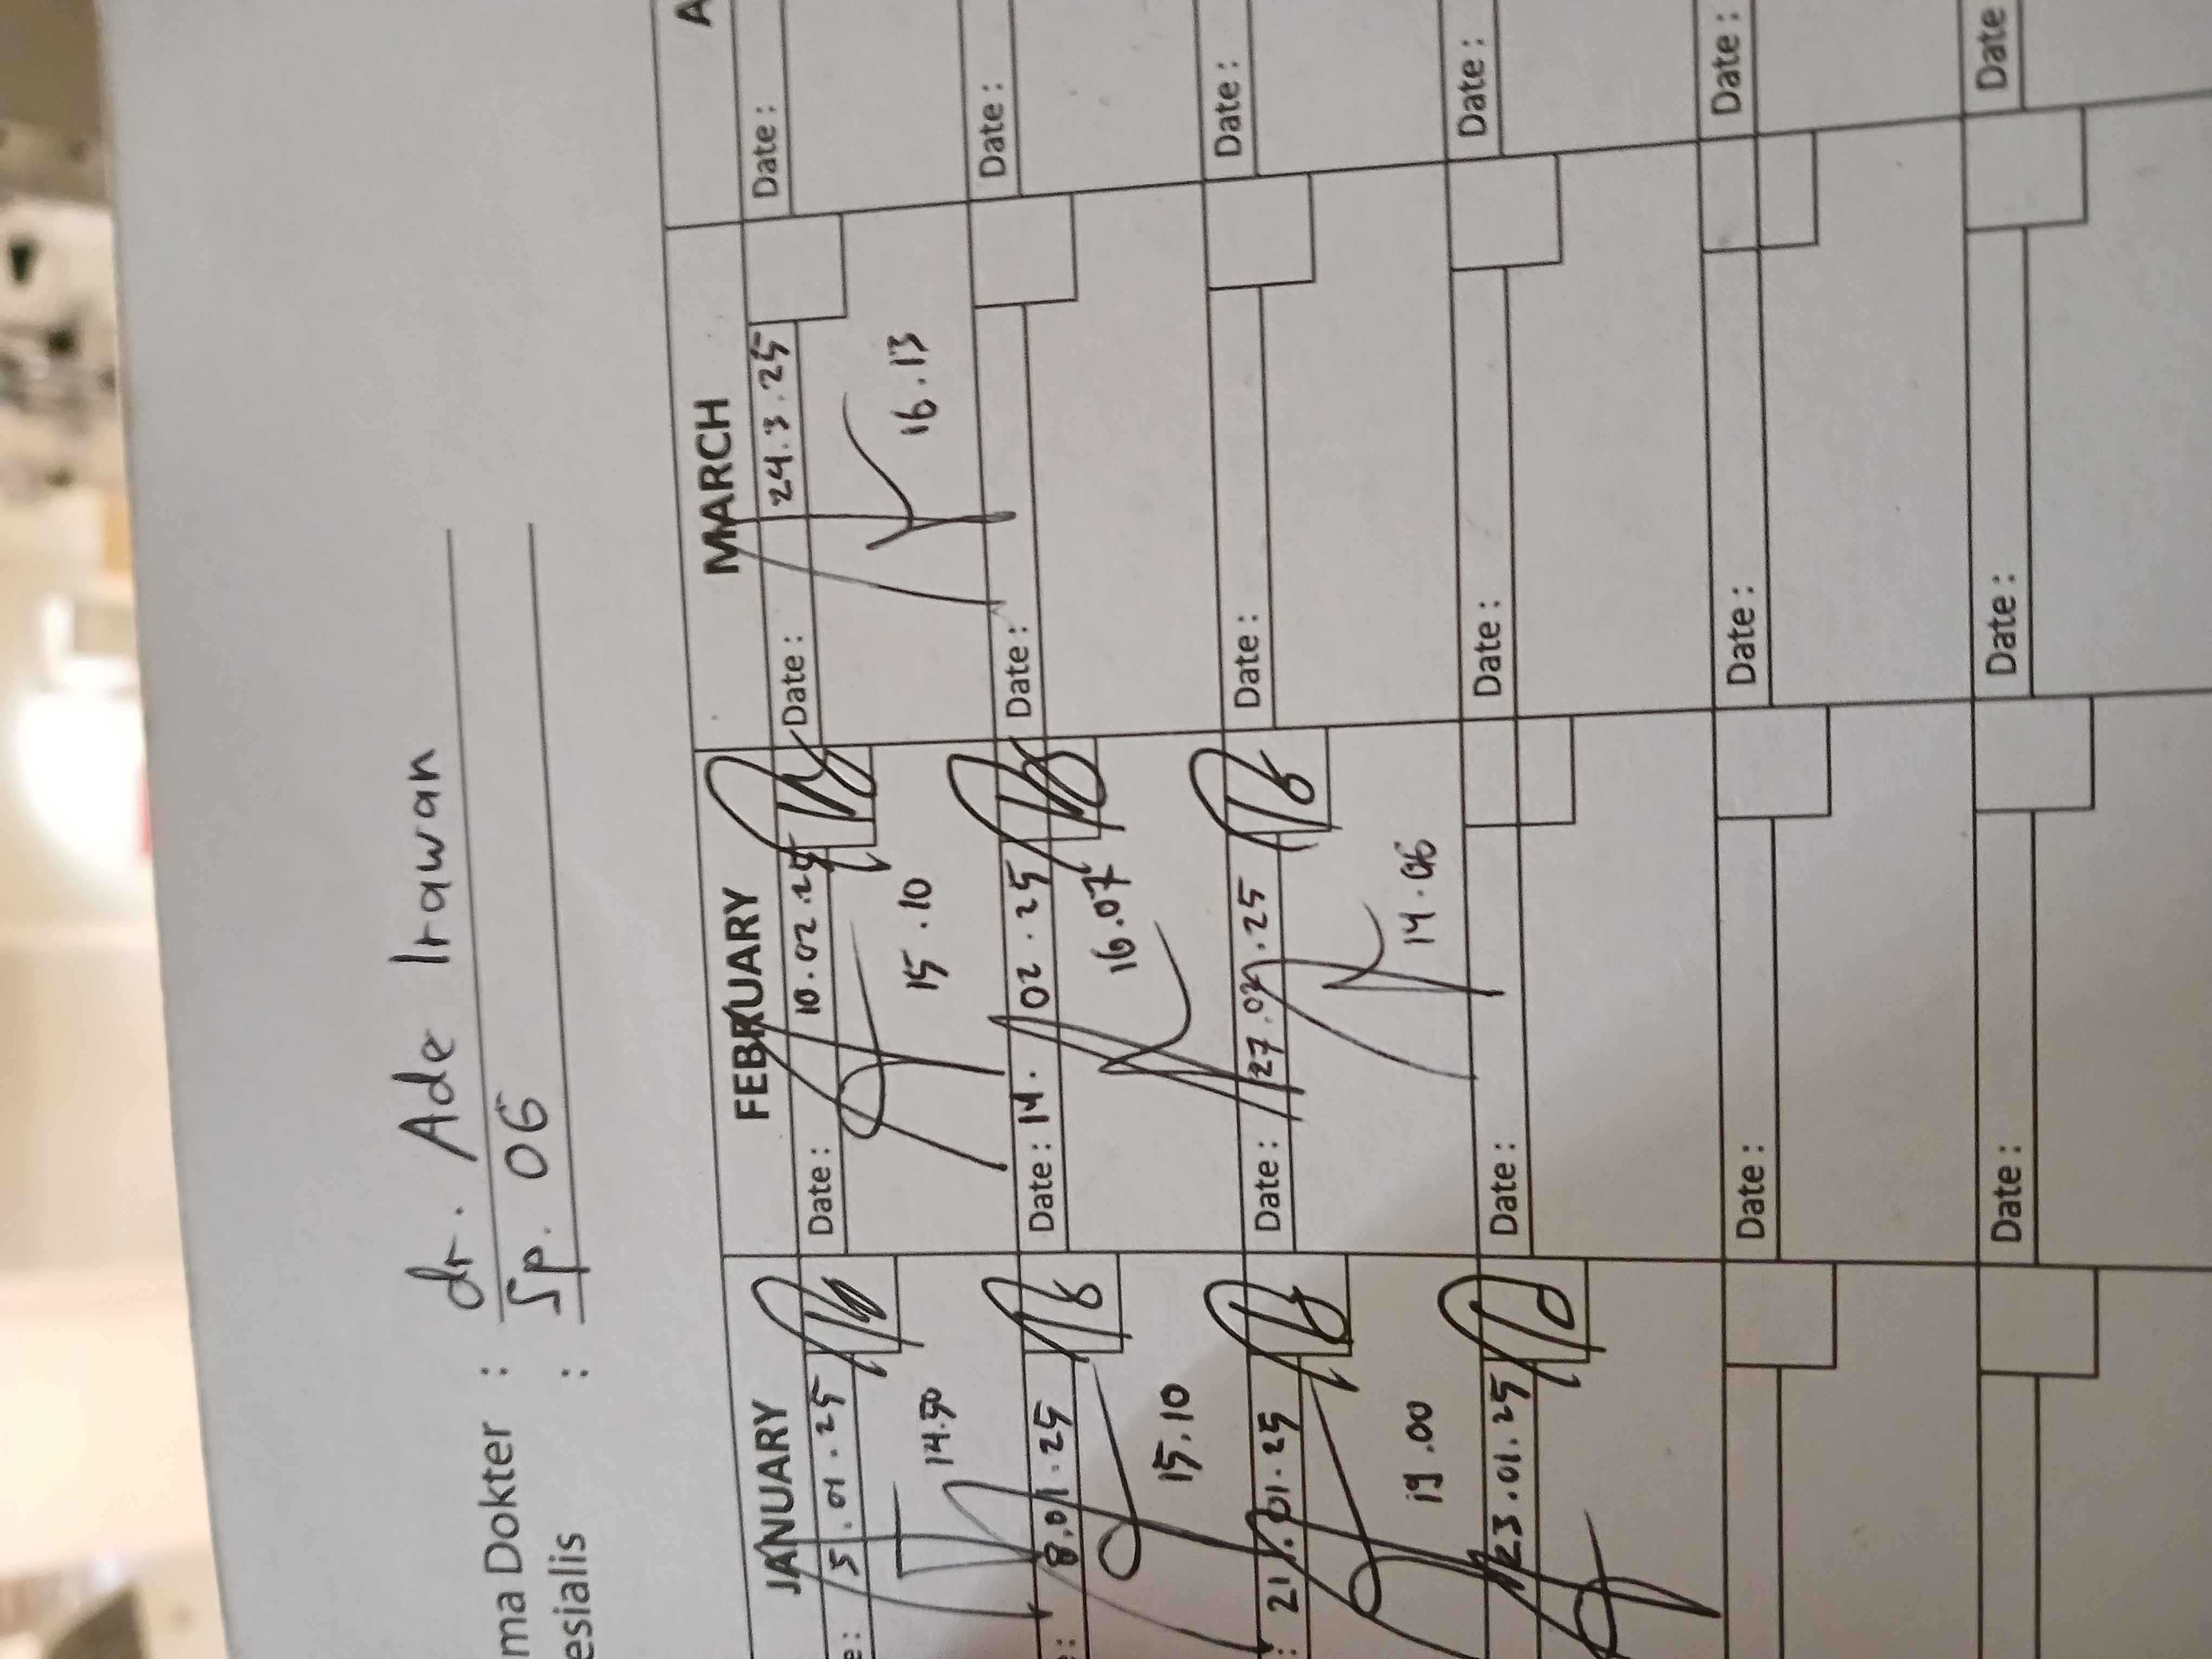 ma Dokter : dr. Ade Irawan
esialis : Sp. OG
JANUARY FEBRUARY MARCH A
e: 5.01.25 Date: 10.02.25 Date: 24.3.25 Date:
14.50 15.10 16.13
e: 8.01.25 Date: 14.02.25 Date: Date:
15.10 16.07
: 21.01.25 Date: 27.02.25 Date: Date:
19.00 14.06
23.01.25 Date: Date: Date:
Date: Date: Date:
Date: Date: Date